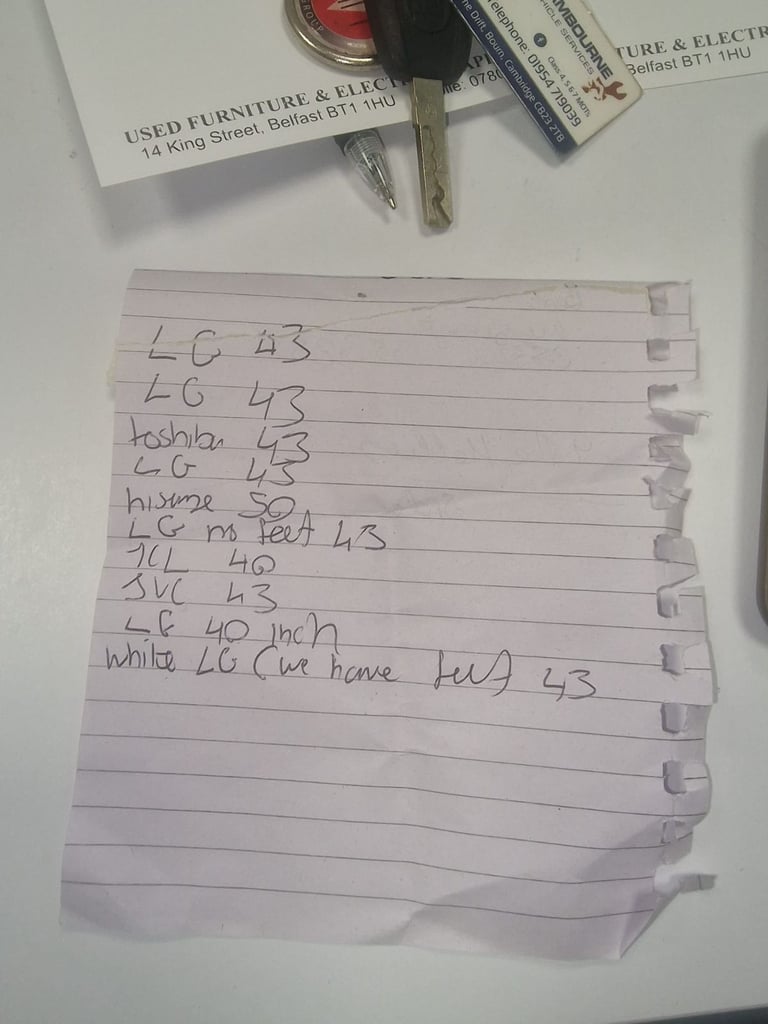 USED FURNITURE & ELECT
14 King Street, Belfast BT1 1HU
078
AMBOURNE
HICLE SERVICES
Class 4, 5 & 7 MOTs
Telephone: 01954 719039
The Drift, Bourn, Cambridge CB23 2TB
TURE & ELECTR
Belfast BT1 1HU
LG 43
LG 43
toshiba 43
LG 43
hisense 50
LG no feet 43
TCL 40
JVC 43
LG 40 inch
white LG (we have feet 43